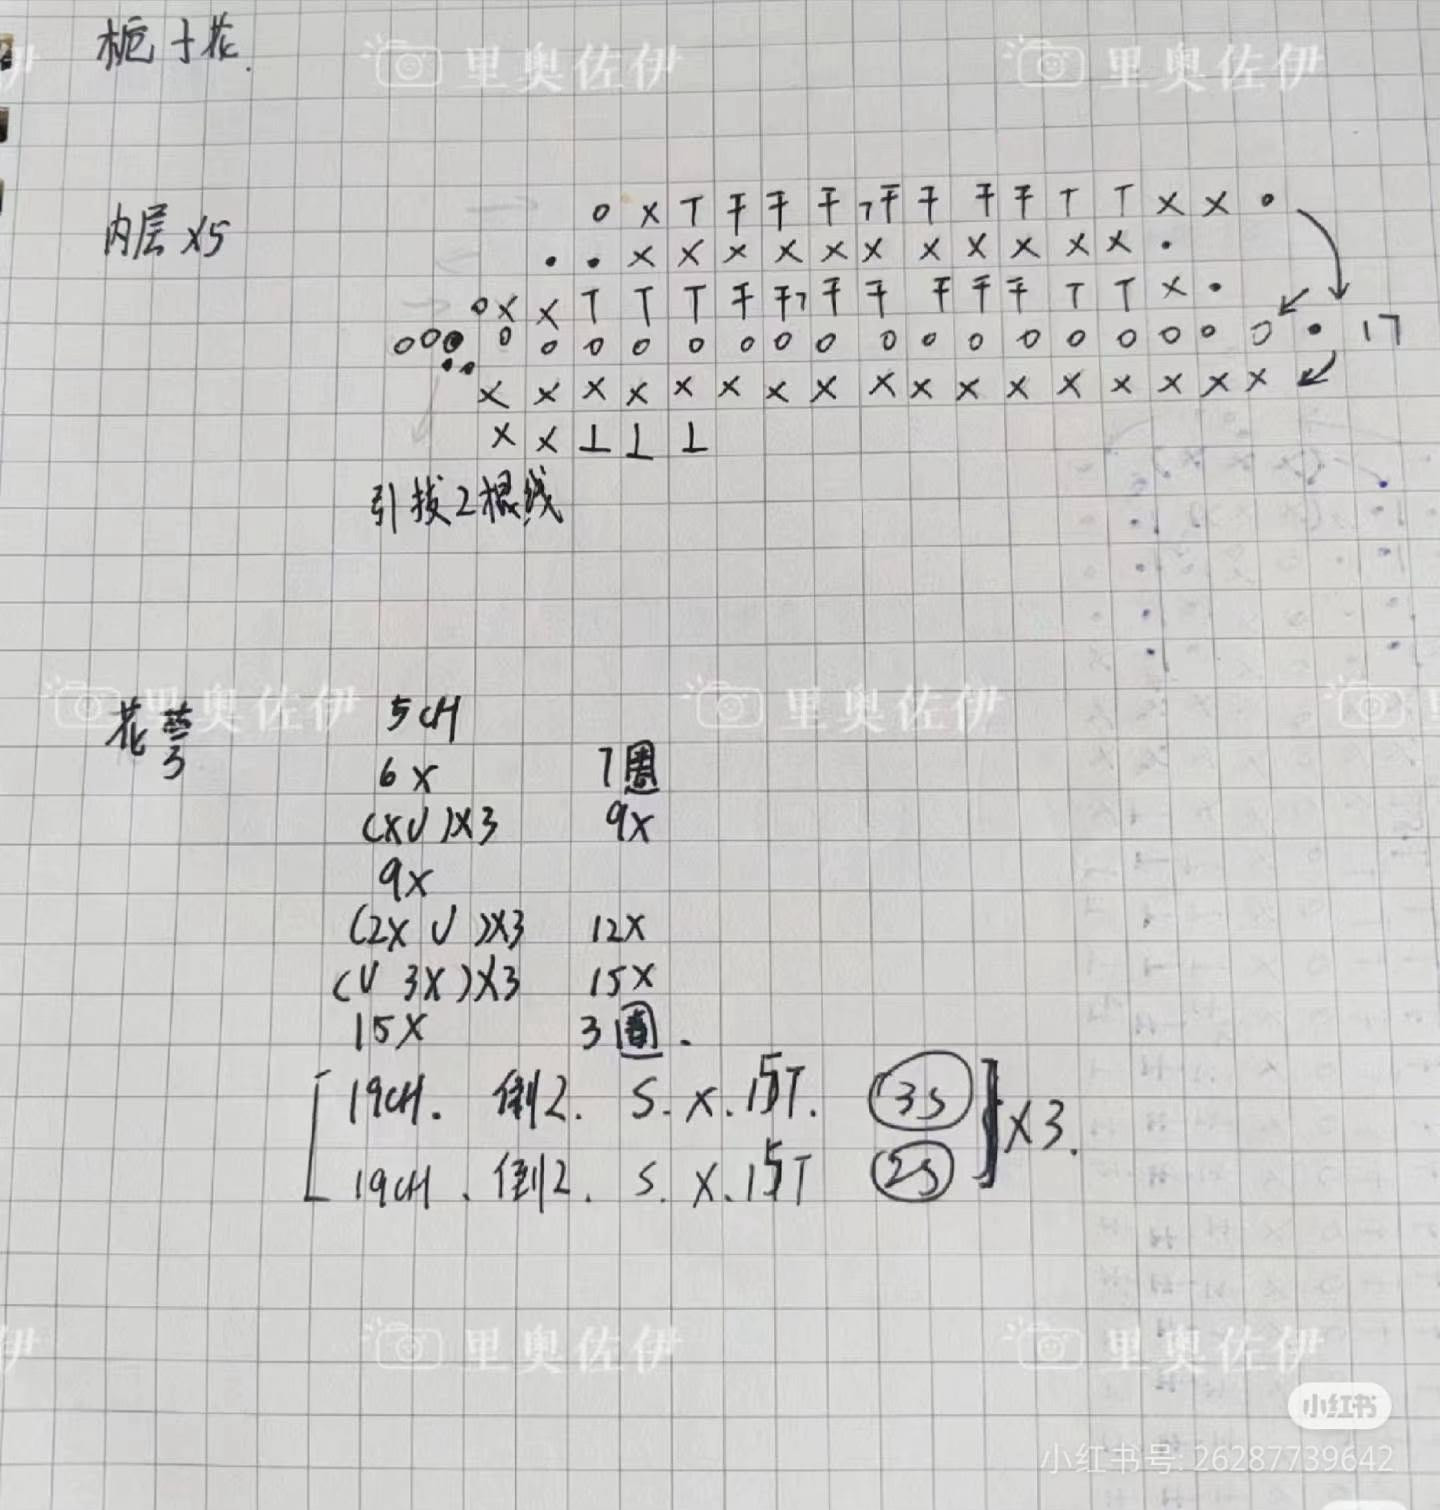 栀子花.
内层 X5
o X T 干 干 干 7干 干 干 干 T T X X •
• • X X X X X X X X X X X •
o X X T T T 干 干7 干 干 干 干 干 T T X •
o o o o o o o o o o o o o o o o o o o • 17
X X X X X X X X X X X X X X X X X
X X ⊥ ⊥ ⊥
引拔2根线
花萼
5CH
6X 7圈
(XV)X3 9X
9X
(2X V)X3 12X
(V 3X)X3 15X
15X 3圈.
[19CH. 倒2. S. X. 15T. (3S)
19CH. 倒2. S. X. 15T (2S)] X3.
里奥佐伊
里奥佐伊
里奥佐伊
里奥佐伊
里奥佐伊
里奥佐伊
里奥佐伊
小红书
小红书号: 26287739642